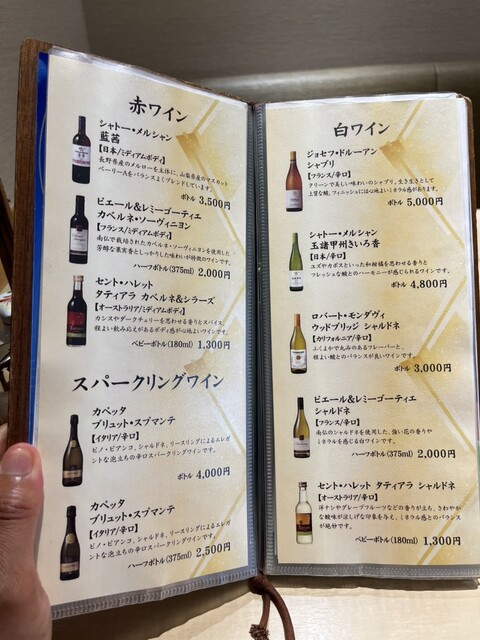 赤ワイン
シャトー・メルシャン
藍茜
【日本/ミディアムボディ】
長野県産のメルローを主体に、山梨県産のマスカット
ベーリーAをバランスよくブレンドしています。
ボトル 3,500円
ピエール&レミーゴーティエ
カベルネ・ソーヴィニヨン
【フランス/ミディアムボディ】
南仏で栽培されたカベルネ・ソーヴィニヨンを使用した
芳醇な果実香としっかりした味わいが特徴のワインです。
ハーフボトル(375ml) 2,000円
セント・ハレット
タティアラ カベルネ&シラーズ
【オーストラリア/ミディアムボディ】
カシスやダークチェリーを思わせる香りとスパイス、
程よい飲み応えがあるボディ感が心地よいワインです。
ベビーボトル(180ml) 1,300円
スパークリングワイン
カペッタ
ブリュット・スプマンテ
【イタリア/辛口】
ピノ・ビアンコ、シャルドネ、リースリングによるエレガ
ントな泡立ちの辛口スパークリングワインです。
ボトル 4,000円
カペッタ
ブリュット・スプマンテ
【イタリア/辛口】
ピノ・ビアンコ、シャルドネ、リースリングによるエレガ
ントな泡立ちの辛口スパークリングワインです。
ハーフボトル(375ml) 2,500円
白ワイン
ジョセフ・ドルーアン
シャブリ
【フランス/辛口】
クリーンで美しい味わいのシャブリ。生き生きとして
上質な酸、フィニッシュには心地よいミネラル感があります。
ボトル 5,000円
シャトー・メルシャン
玉諸甲州きいろ香
【日本/辛口】
ユズやカボスといった和柑橘を思わせる香りと
フレッシュな酸とのハーモニーが感じられるワインです。
ボトル 4,800円
ロバート・モンダヴィ
ウッドブリッジ シャルドネ
【カリフォルニア/辛口】
ふくよかで丸みのあるフレーバーと、
程よい酸とのバランスが良いワインです。
ボトル 3,000円
ピエール&レミーゴーティエ
シャルドネ
【フランス/辛口】
南仏のシャルドネを使用した、強い花の香りや
ミネラルを感じる白ワインです。
ハーフボトル(375ml) 2,000円
セント・ハレット タティアラ シャルドネ
【オーストラリア/辛口】
洋ナシやグレープフルーツなどの香りが立ち、さわやか
な酸味が涼しげな印象を与え、ミネラル感とのバランス
が絶妙です。
ベビーボトル(180ml) 1,300円